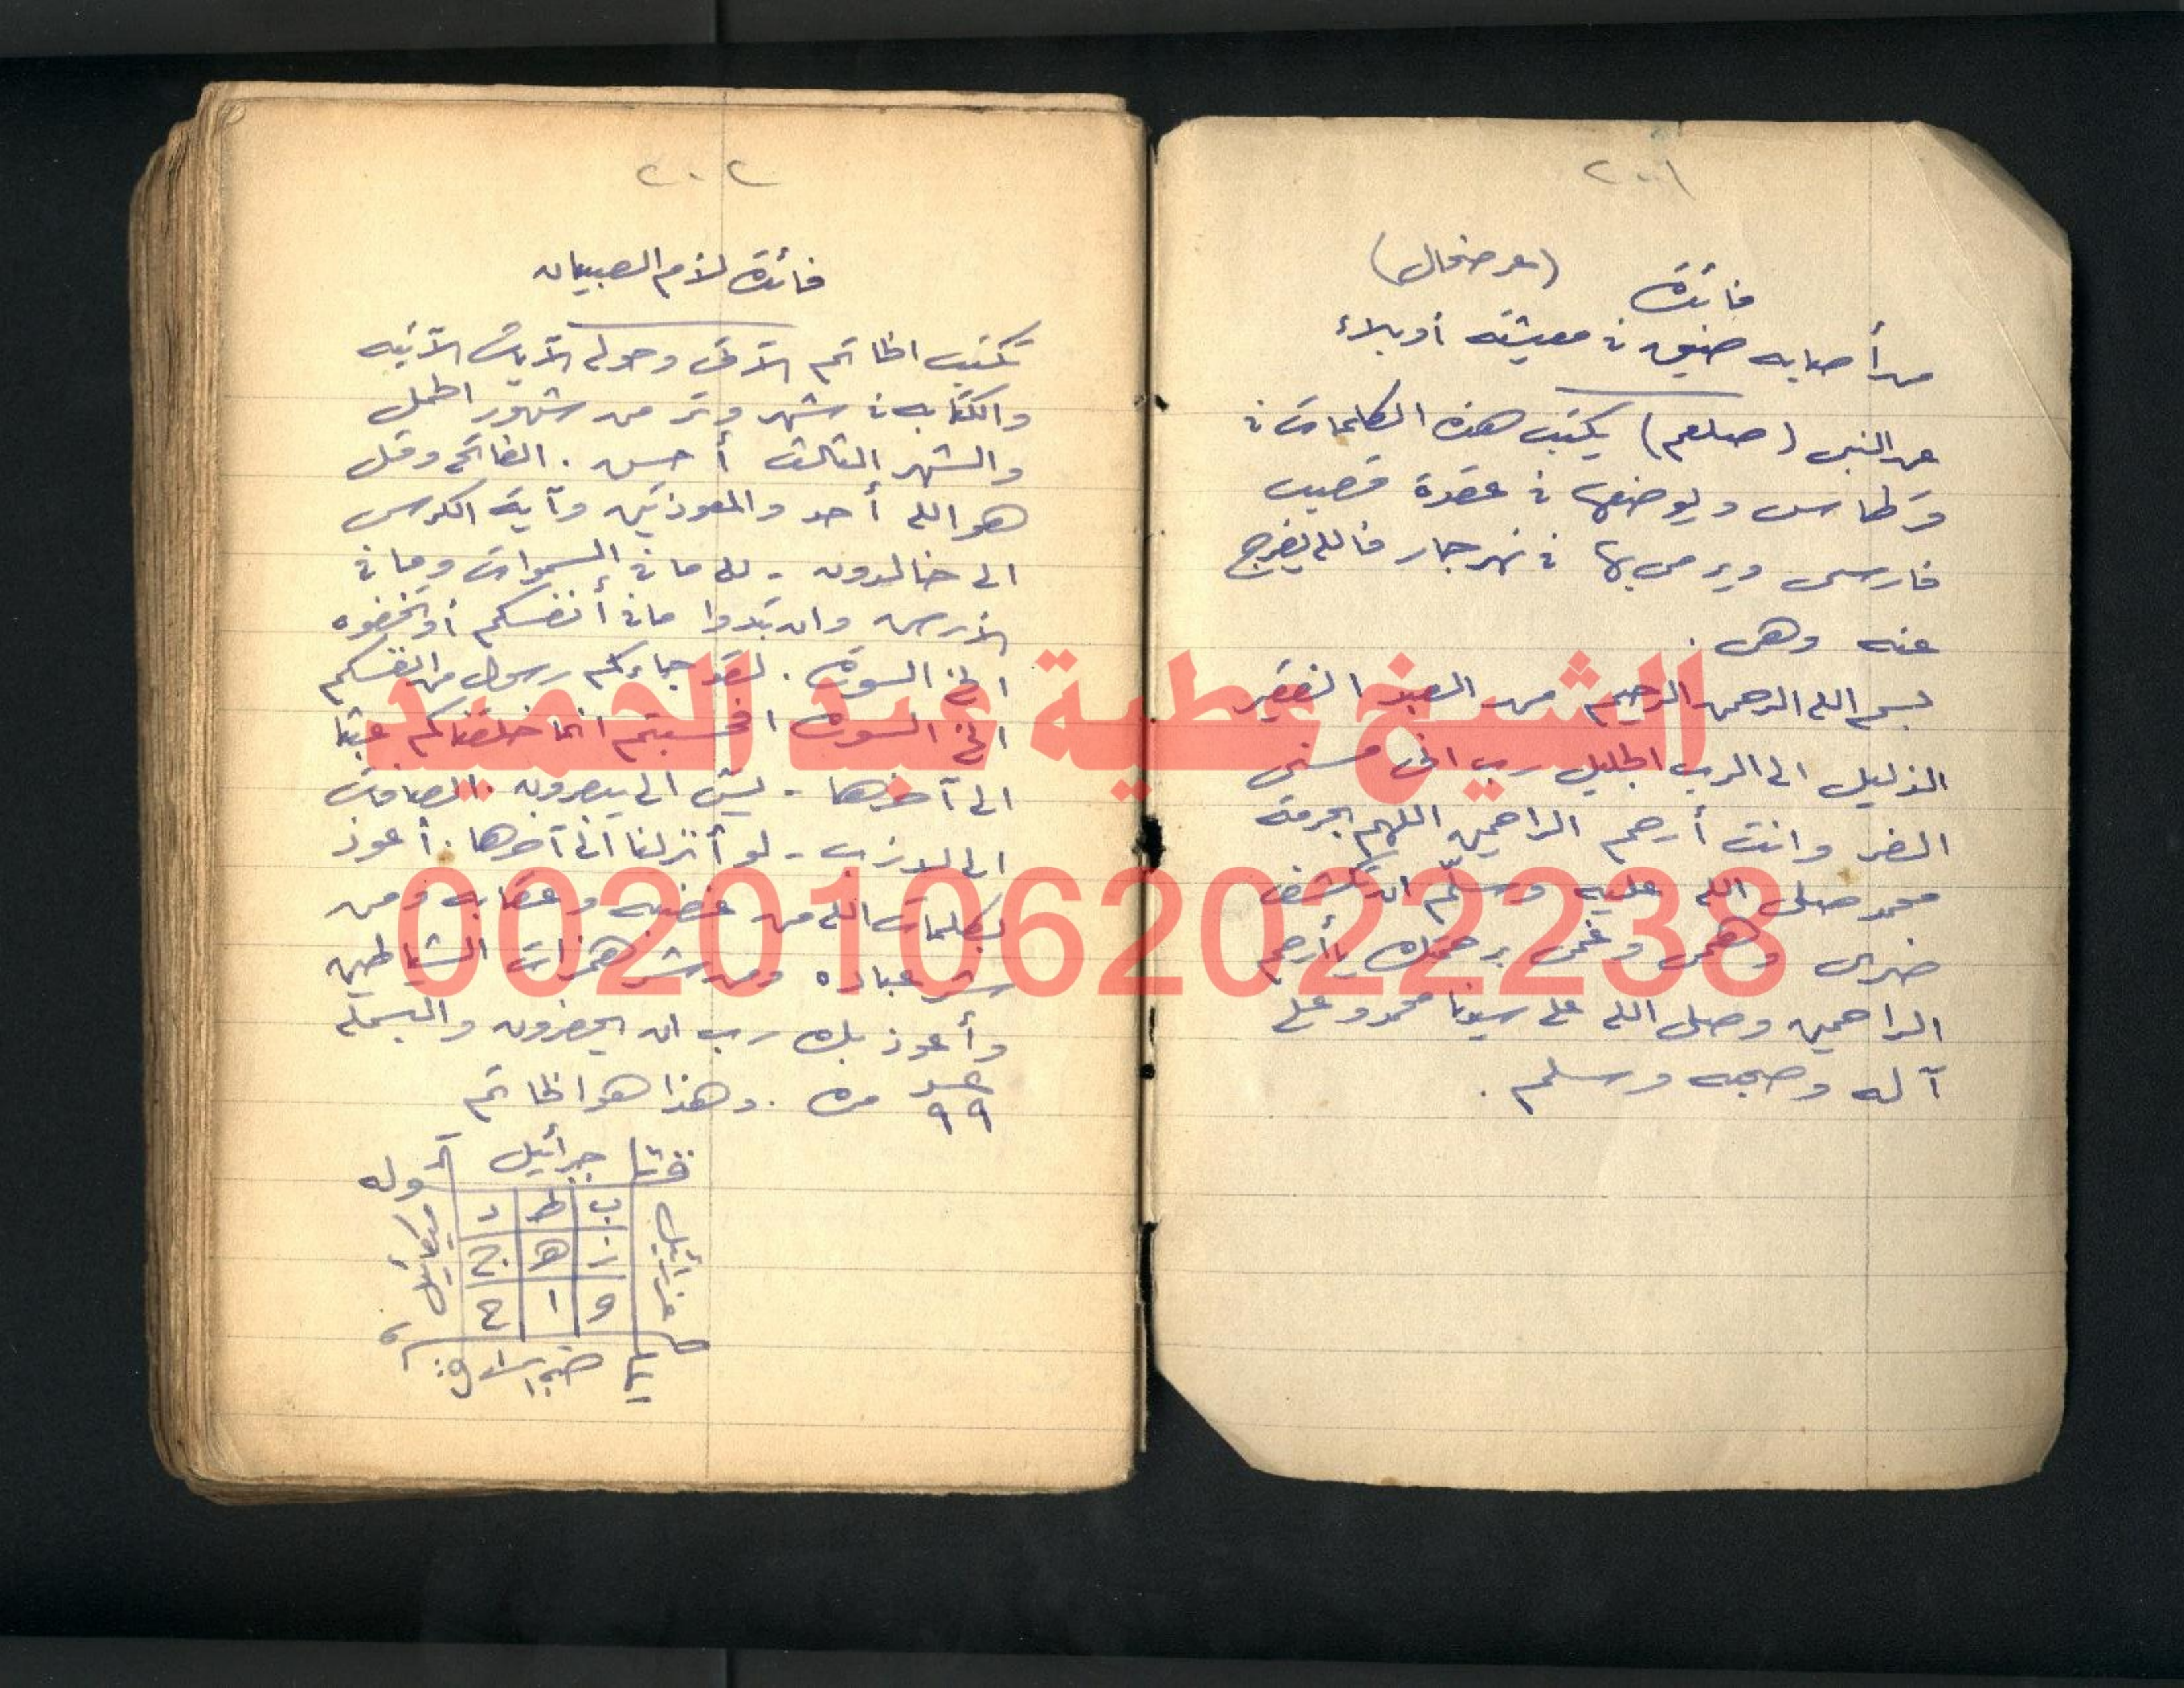 ٢٠٠١
فائدة (عرضحال)
من أصابه ضيق في معيشته أو بلاء
عن النبي (صلعم) يكتب هذه الكلمات في
قرطاس ويوضعها في عقدة قصب
فارسى ويرمى بها في نهر جار فالله يفرج
عنه وهى.
بسم الله الرحمن الرحيم من العبد الفقير
الذليل الى الرب الجليل رب انى مسنى
الضر وانت أرحم الراحمين اللهم بحرمة
محمد صلى الله عليه وسلّم ان تكشف
ضرى وهمى وغمى برحمتك يا أرحم
الراحمين وصلى الله على سيدنا محمد وعلى
آله وصحبه وسلم.
٢٠٠٢
فائدة لأم الصبيان
تكتب الخاتم الآتى وحوله الآيات الآتيه
والكتابه في شهر وتر من شهور الحمل
والشهر الثالث أحسن. الفاتحه وقل
هو الله أحد والمعوذتين وآية الكرسى
الى خالدون - لله ما في السموات وما في
الأرض وان تبدوا ما في أنفسكم أو تخفوه
الخ السورة. لقد جاءكم رسول من انفسكم
الخ السوره افحسبتم انما خلقناكم عبثا
الى آخرها - يس الى يبصرون. الصافات
الى لازب - لو أنزلنا الى آخرها. أعوذ
بكلمات الله من غضبه وعقابه ومن
شر عباده ومن شر همزات الشياطين
وأعوذ بك رب ان يحضرون والبسمله
عدد ٩٩ مره. وهذا هو الخاتم
جبرائيل
وله
ب ط د
ز ه ج
و ا ح
عزرائيل
ميكائيل
الشيخ عطية عبد الحميد
00201062022238